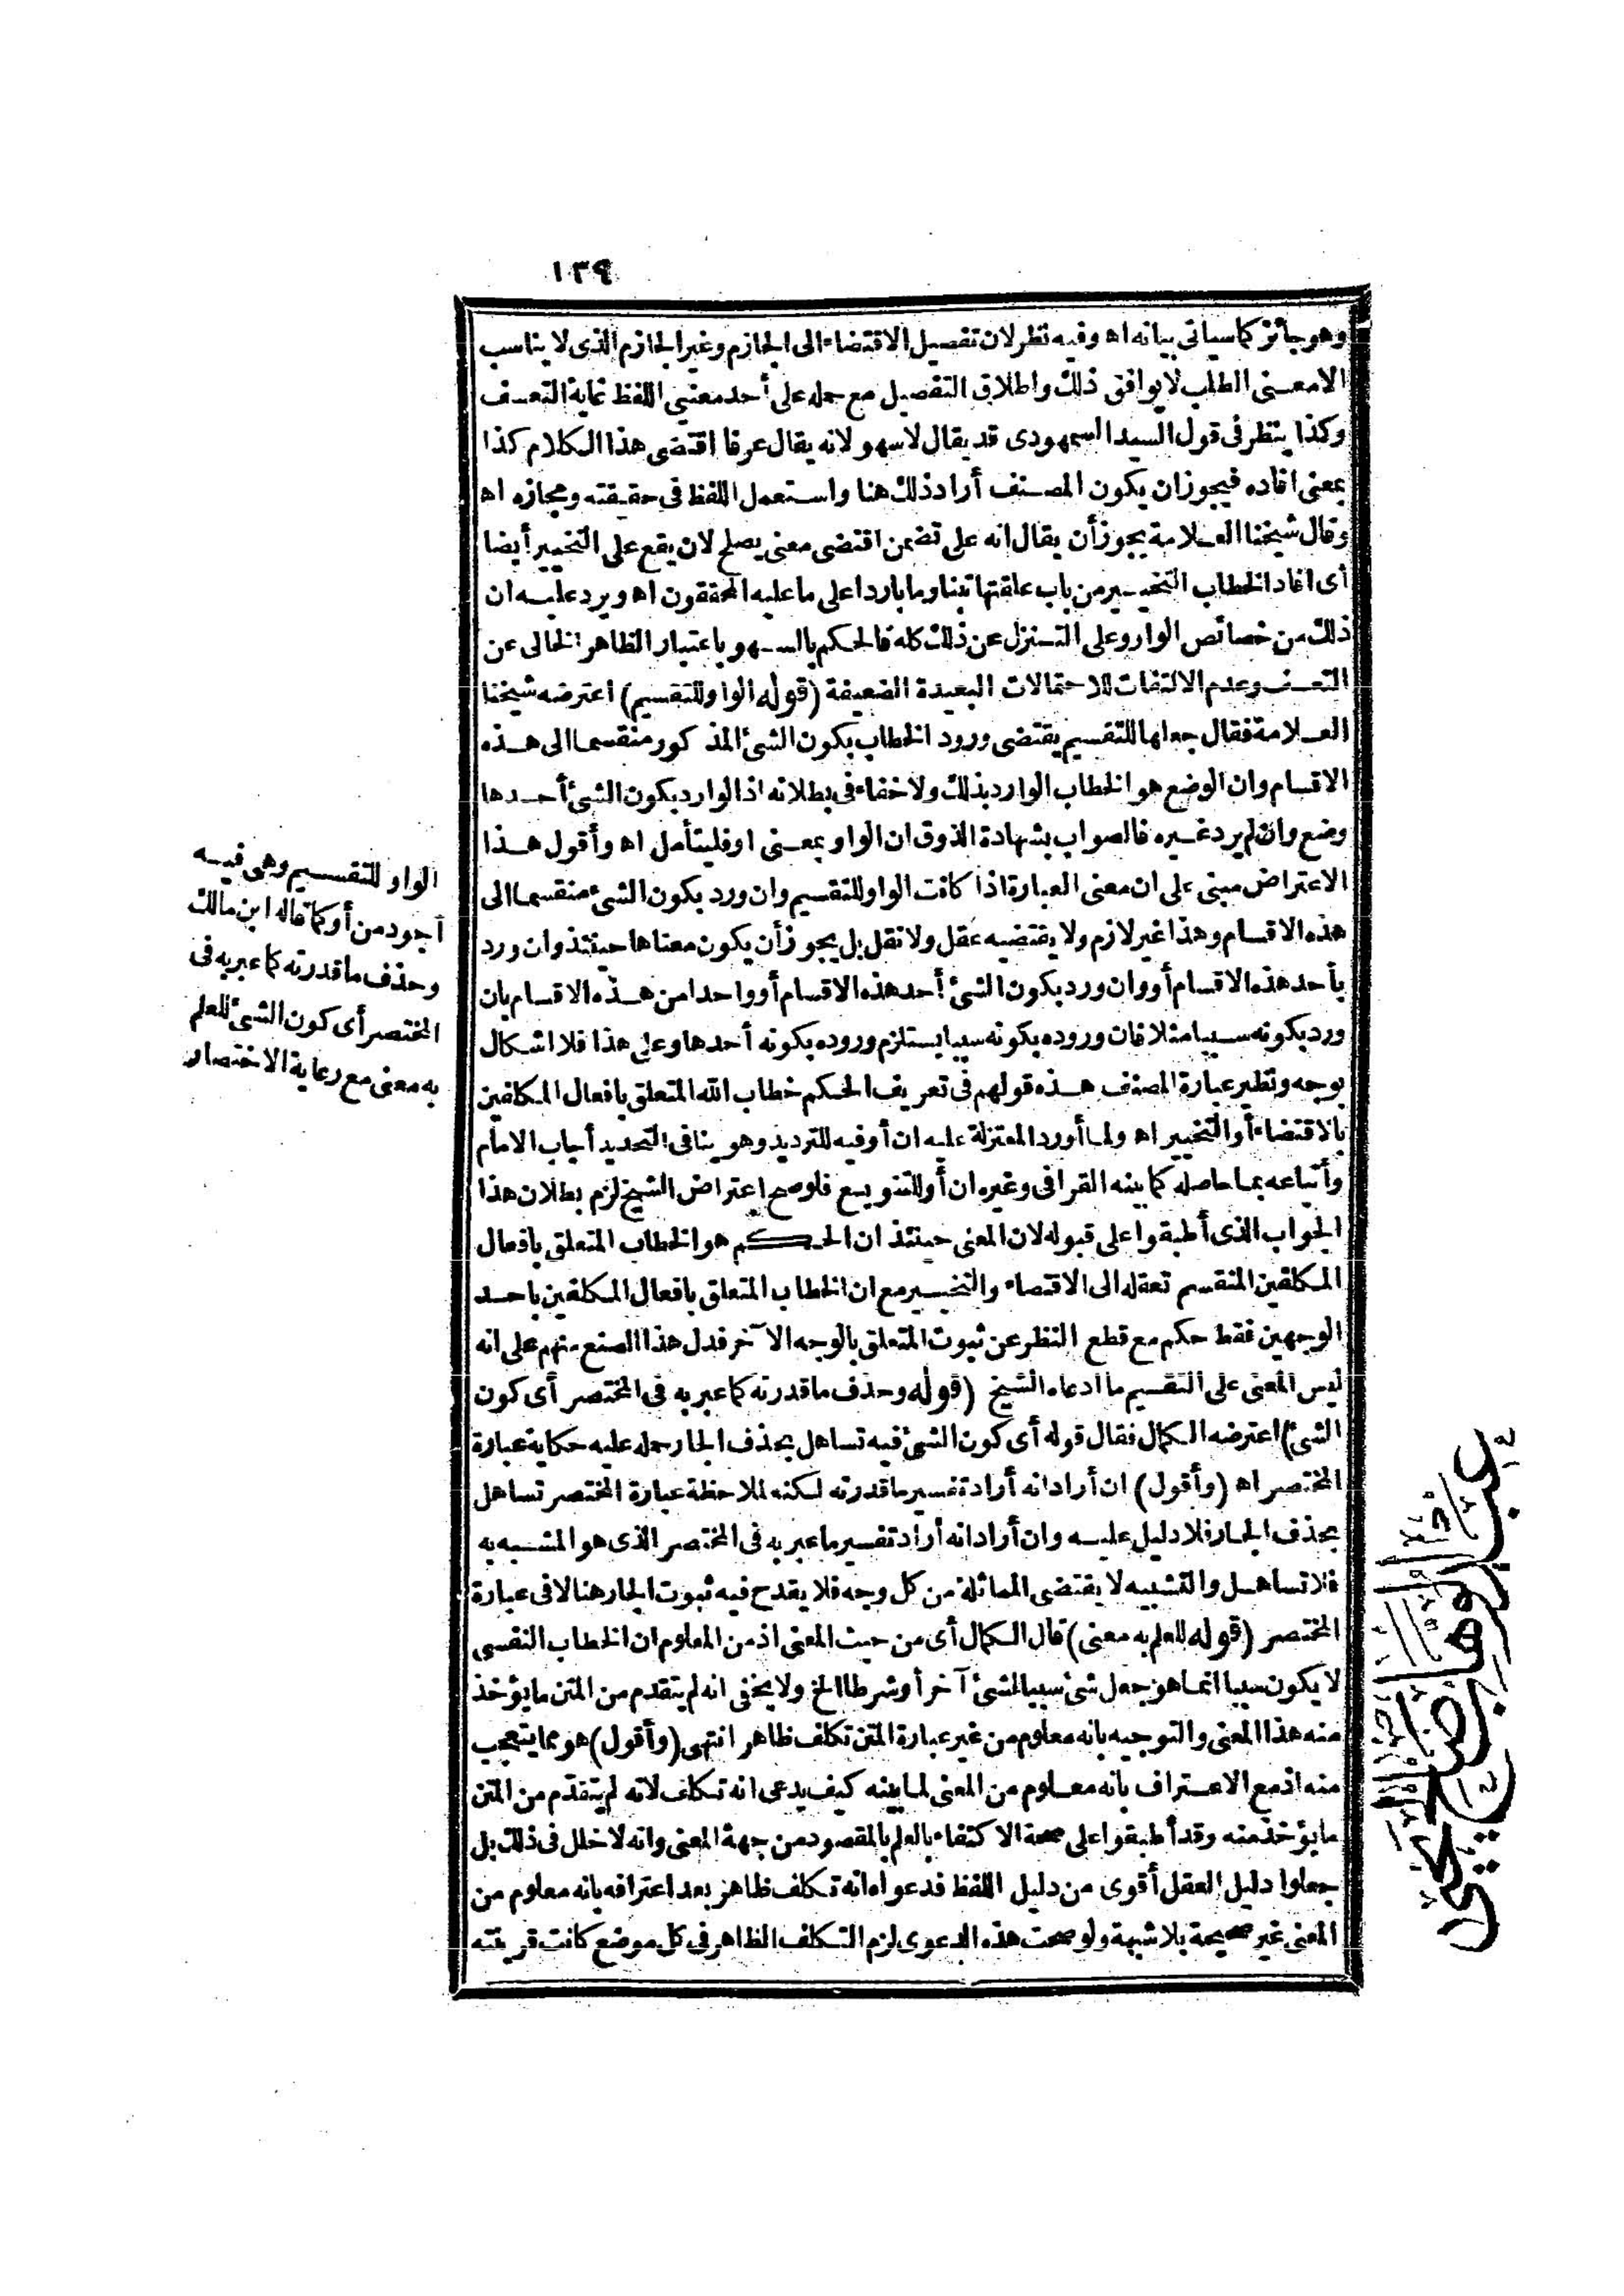 ١٣٩
وهو جائز كما سيأتى بيانه اه وفيه نظر لان تفصيل الاقتضاء الى الجازم وغير الجازم الذى لا يناسب
الا معنى الطلب لا يوافق ذلك واطلاق التفصيل مع حمله على أحد معنيى اللفظ غاية التعسف
وكذا ينظر فى قول السيد السمهودى قد يقال لا سهو لانه يقال عرفا اقتضى هذا الكلام كذا
بمعنى افاده فيجوز ان يكون المصنف أراد ذلك هنا واستعمل اللفظ فى حقيقته ومجازه اه
وقال شيخنا العلامة يجوز أن يقال انه على تضمن اقتضى معنى يصلح لان يقع على التخيير أيضا
أى افاد الخطاب التخيير من باب علفتها تبنا وما باردا على ما عليه المحققون اه ويرد عليه ان
ذلك من خصائص الواو وعلى التنزل عن ذلك كله فالحكم بالسهو باعتبار الظاهر الخالى عن
التعسف وعدم الالتفات للاحتمالات البعيدة الضعيفة (قوله الواو للتقسيم) اعترضه شيخنا
العلامة فقال جعلها للتقسيم يقتضى ورود الخطاب بكون الشئ المذكور منقسما الى هذه
الاقسام وان الوضع هو الخطاب الوارد بذلك ولا خفاء فى بطلانه اذ الوارد بكون الشئ أحدها
وضع وان لم يرد غيره فالصواب بشهادة الذوق ان الواو بمعنى او فليتأمل اه وأقول هذا
الاعتراض مبنى على ان معنى العبارة اذا كانت الواو للتقسيم وان ورد بكون الشئ منقسما الى
هذه الاقسام وهذا غير لازم ولا يقتضيه عقل ولا نقل بل يجوز أن يكون معناها حينئذ وان ورد
بأحد هذه الاقسام أو وان ورد بكون الشئ أحد هذه الاقسام أو واحدا من هذه الاقسام بان
ورد بكونه سببا مثلا فان وروده بكونه سببا يستلزم وروده بكونه أحدها وعلى هذا فلا اشكال
بوجه ونظير عبارة المصنف هذه قولهم فى تعريف الحكم خطاب الله المتعلق بافعال المكلفين
بالاقتضاء أو التخيير اه ولما أورد المعتزلة عليه ان أو فيه للترديد وهو ينافى التحديد أجاب الامام
وأتباعه بما حاصله كما بينه القرافى وغيره ان أو للتنويع فلو صح اعتراض الشيخ لزم بطلان هذا
الجواب الذى أطبقوا على قبوله لان المعنى حينئذ ان الحكم هو الخطاب المتعلق بافعال
المكلفين المنقسم تعقله الى الاقتضاء والتخيير مع ان الخطاب المتعلق بافعال المكلفين باحد
الوجهين فقط حكم مع قطع النظر عن ثبوت المتعلق بالوجه الآخر فدل هذا الصنع منهم على انه
ليس المعنى على التقسيم ما ادعاه الشيخ (قوله وحذف ما قدرته كما عبر به فى المختصر أى كون
الشئ) اعترضه الكمال فقال قوله أى كون الشئ فيه تساهل بحذف الجار حمله عليه حكاية عبارة
المختصر اه (وأقول) ان أراد انه أراد تفسير ما قدرته لكنه لملاحظة عبارة المختصر تساهل
بحذف الجار فلا دليل عليه وان أراد انه أراد تفسير ما عبر به فى المختصر الذى هو المشبه به
فلا تساهل والتشبيه لا يقتضى المماثلة من كل وجه فلا يقدح فيه ثبوت الجار هنا لا فى عبارة
المختصر (قوله للعلم به معنى) قال الكمال أى من حيث المعنى اذ من المعلوم ان الخطاب النفسى
لا يكون سببا انما هو جعل شئ سببا لشئ آخر أو شرطا الخ ولا يخفى انه لم يتقدم من المتن ما يؤخذ
منه هذا المعنى والتوجيه بانه معلوم من غير عبارة المتن تكلف ظاهر انتهى (وأقول) هو مما يتعجب
منه اذ مع الاعتراف بانه معلوم من المعنى لما بينه كيف يدعى انه تكلف لانه لم يتقدم من المتن
ما يؤخذ منه وقد أطبقوا على صحة الاكتفاء بالعلم بالمقصود من جهة المعنى وانه لا خلل فى ذلك بل
جعلوا دليل العقل أقوى من دليل اللفظ فدعواه انه تكلف ظاهر بعد اعترافه بانه معلوم من
المعنى غير صحيحة بلا شبهة ولو صحت هذه الدعوى لزم التكلف الظاهر فى كل موضع كانت قرينته
الواو للتقسيم وهى فيه
أجود من أو كما قاله ابن مالك
وحذف ما قدرته كما عبر به فى
المختصر أى كون الشئ للعلم
به معنى مع رعاية الاختصار